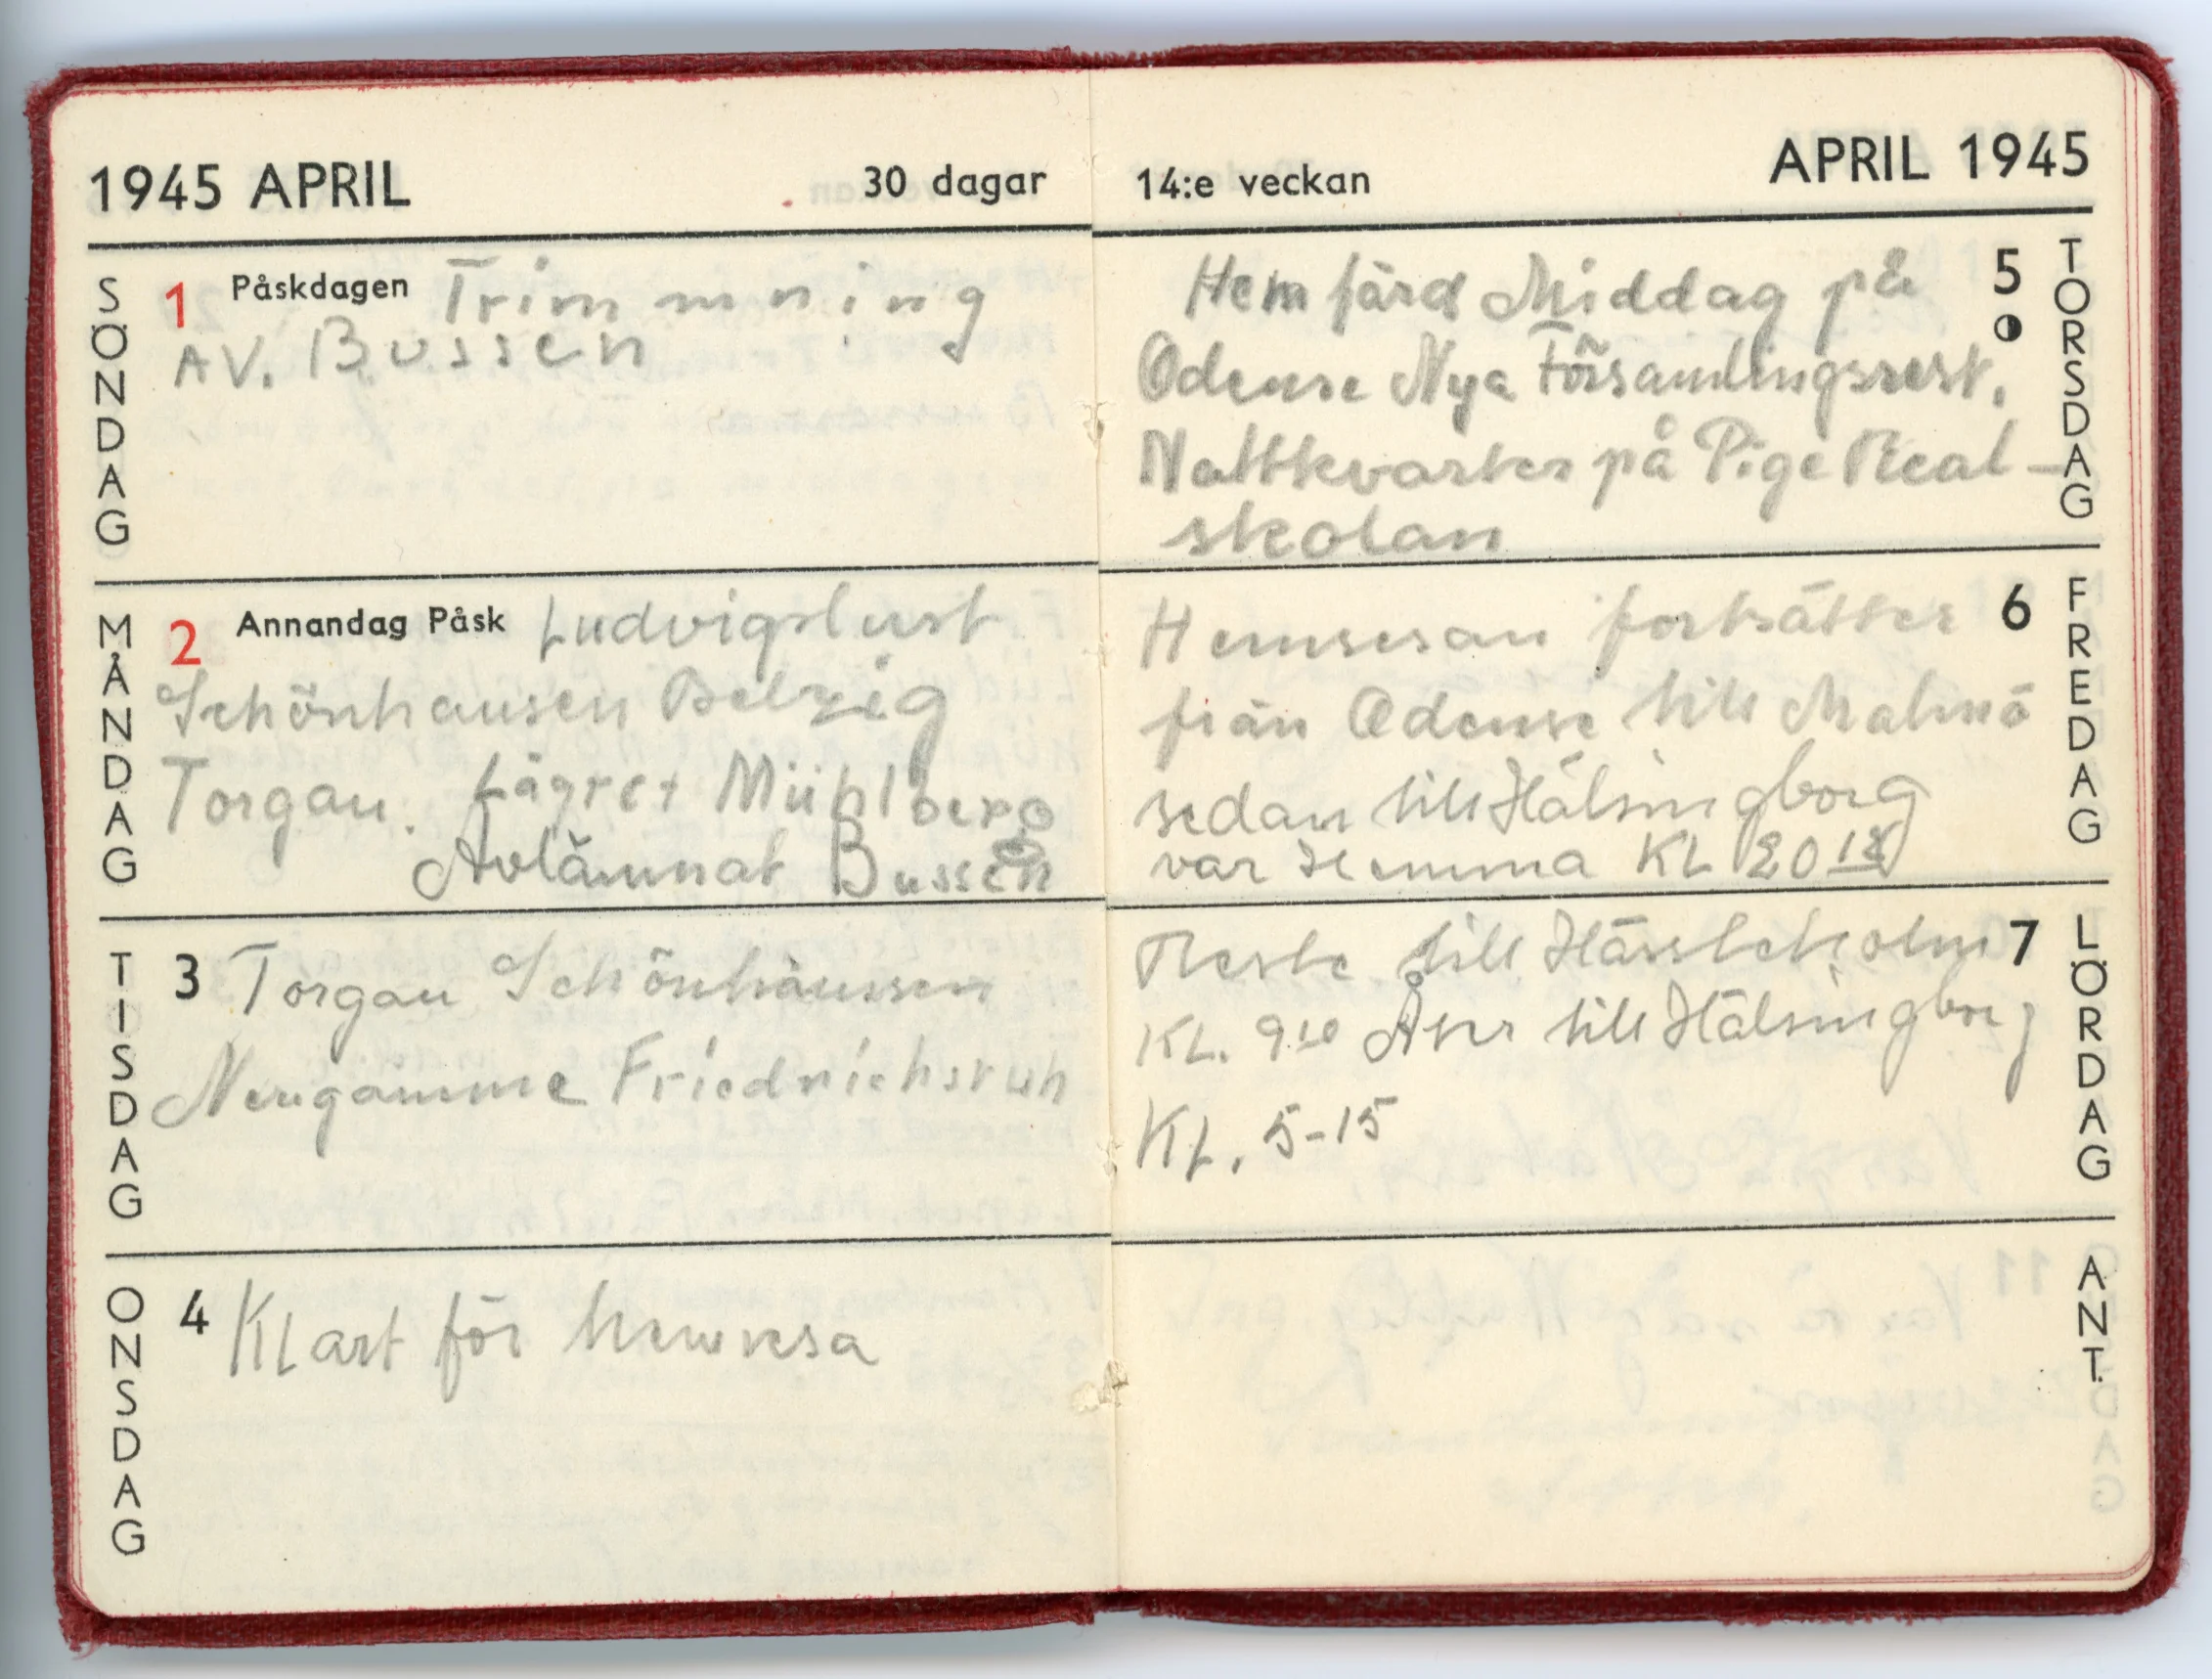 1945 APRIL 30 dagar
SÖNDAG
1 Påskdagen Trimmning
AV. Bussen
MÅNDAG
2 Annandag Påsk Ludvigslust
Schönhausen Belzig
Torgau. Lägret Mühlberg
Avlämnat Bussen
TISDAG
3 Torgau Schönhaussen
Neugamme Friedrichsruh
ONSDAG
4 Klart för hemresa
14:e veckan APRIL 1945
TORSDAG
5
Hemfärd Middag på
Odense Nya Församlingsrest.
Nattkvarter på Pige Real-
skolan
FREDAG
6
Hemresan fortsätter
från Odense till Malmö
sedan till Hälsingborg
var Hemma KL 20
LÖRDAG
7
Reste till Hässleholm
KL. 9 10 Åter till Hälsingborg
KL. 5-15
ANT.